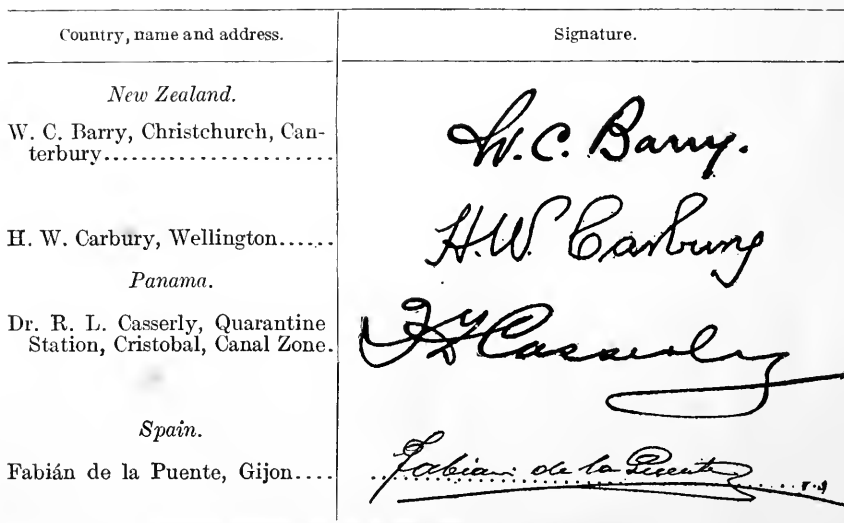 Country, name and address.
Signature.
New Zealand.
W. C. Barry, Christchurch, Can-
terbury.......................
W. C. Barry.
H. W. Carbury, Wellington......
H.W. Carbury
Panama.
Dr. R. L. Casserly, Quarantine
Station, Cristobal, Canal Zone.
Casserly
Spain.
Fabián de la Puente, Gijon....
Fabian de la Puente